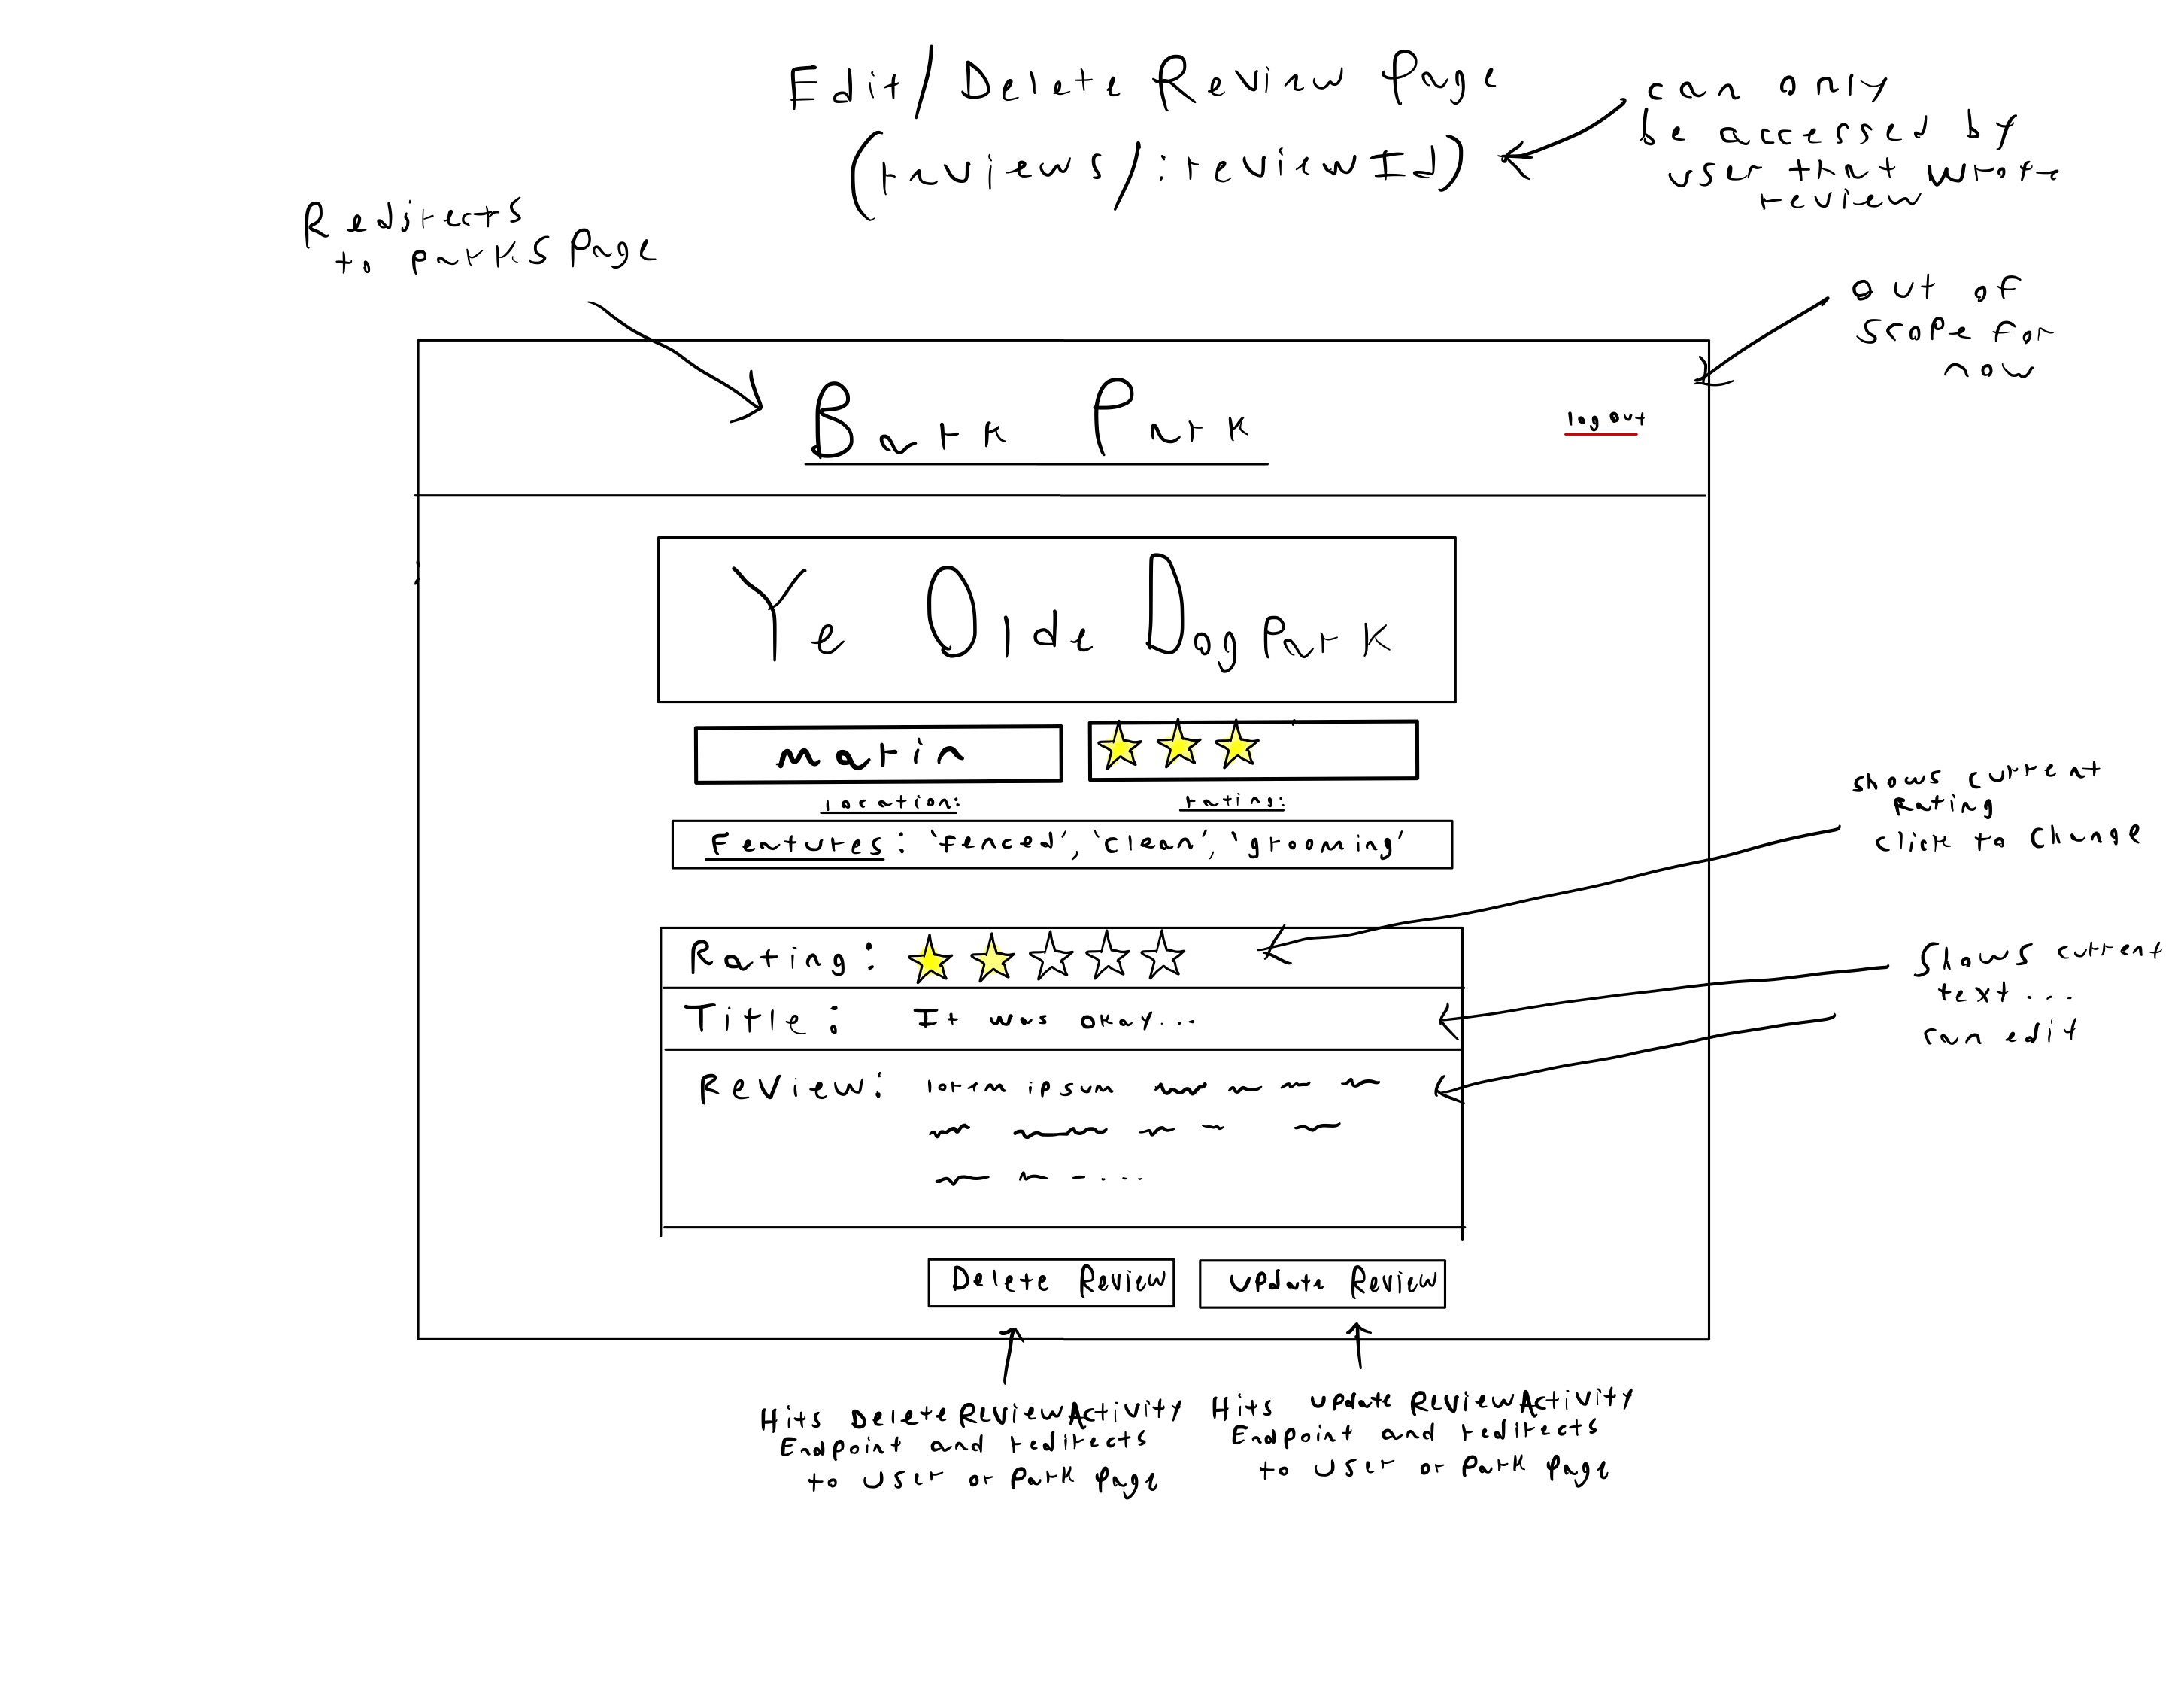 Edit/Delete Review Page
(reviews/:reviewId)
can only
be accessed by
user that wrote
review
Redirects
to parks page
out of
scope for
now
Bark Park
logout
Ye Olde Dog Park
marin
location:
rating:
Features: 'fenced', 'clean', 'grooming'
shows current
rating
click to change
Rating:
Title: It was okay...
Review: lorem ipsum
Shows current
text...
can edit
Delete Review
Update Review
Hits DeleteReviewActivity
Endpoint and redirects
to user or park page
Hits UpdateReviewActivity
Endpoint and redirects
to user or park page